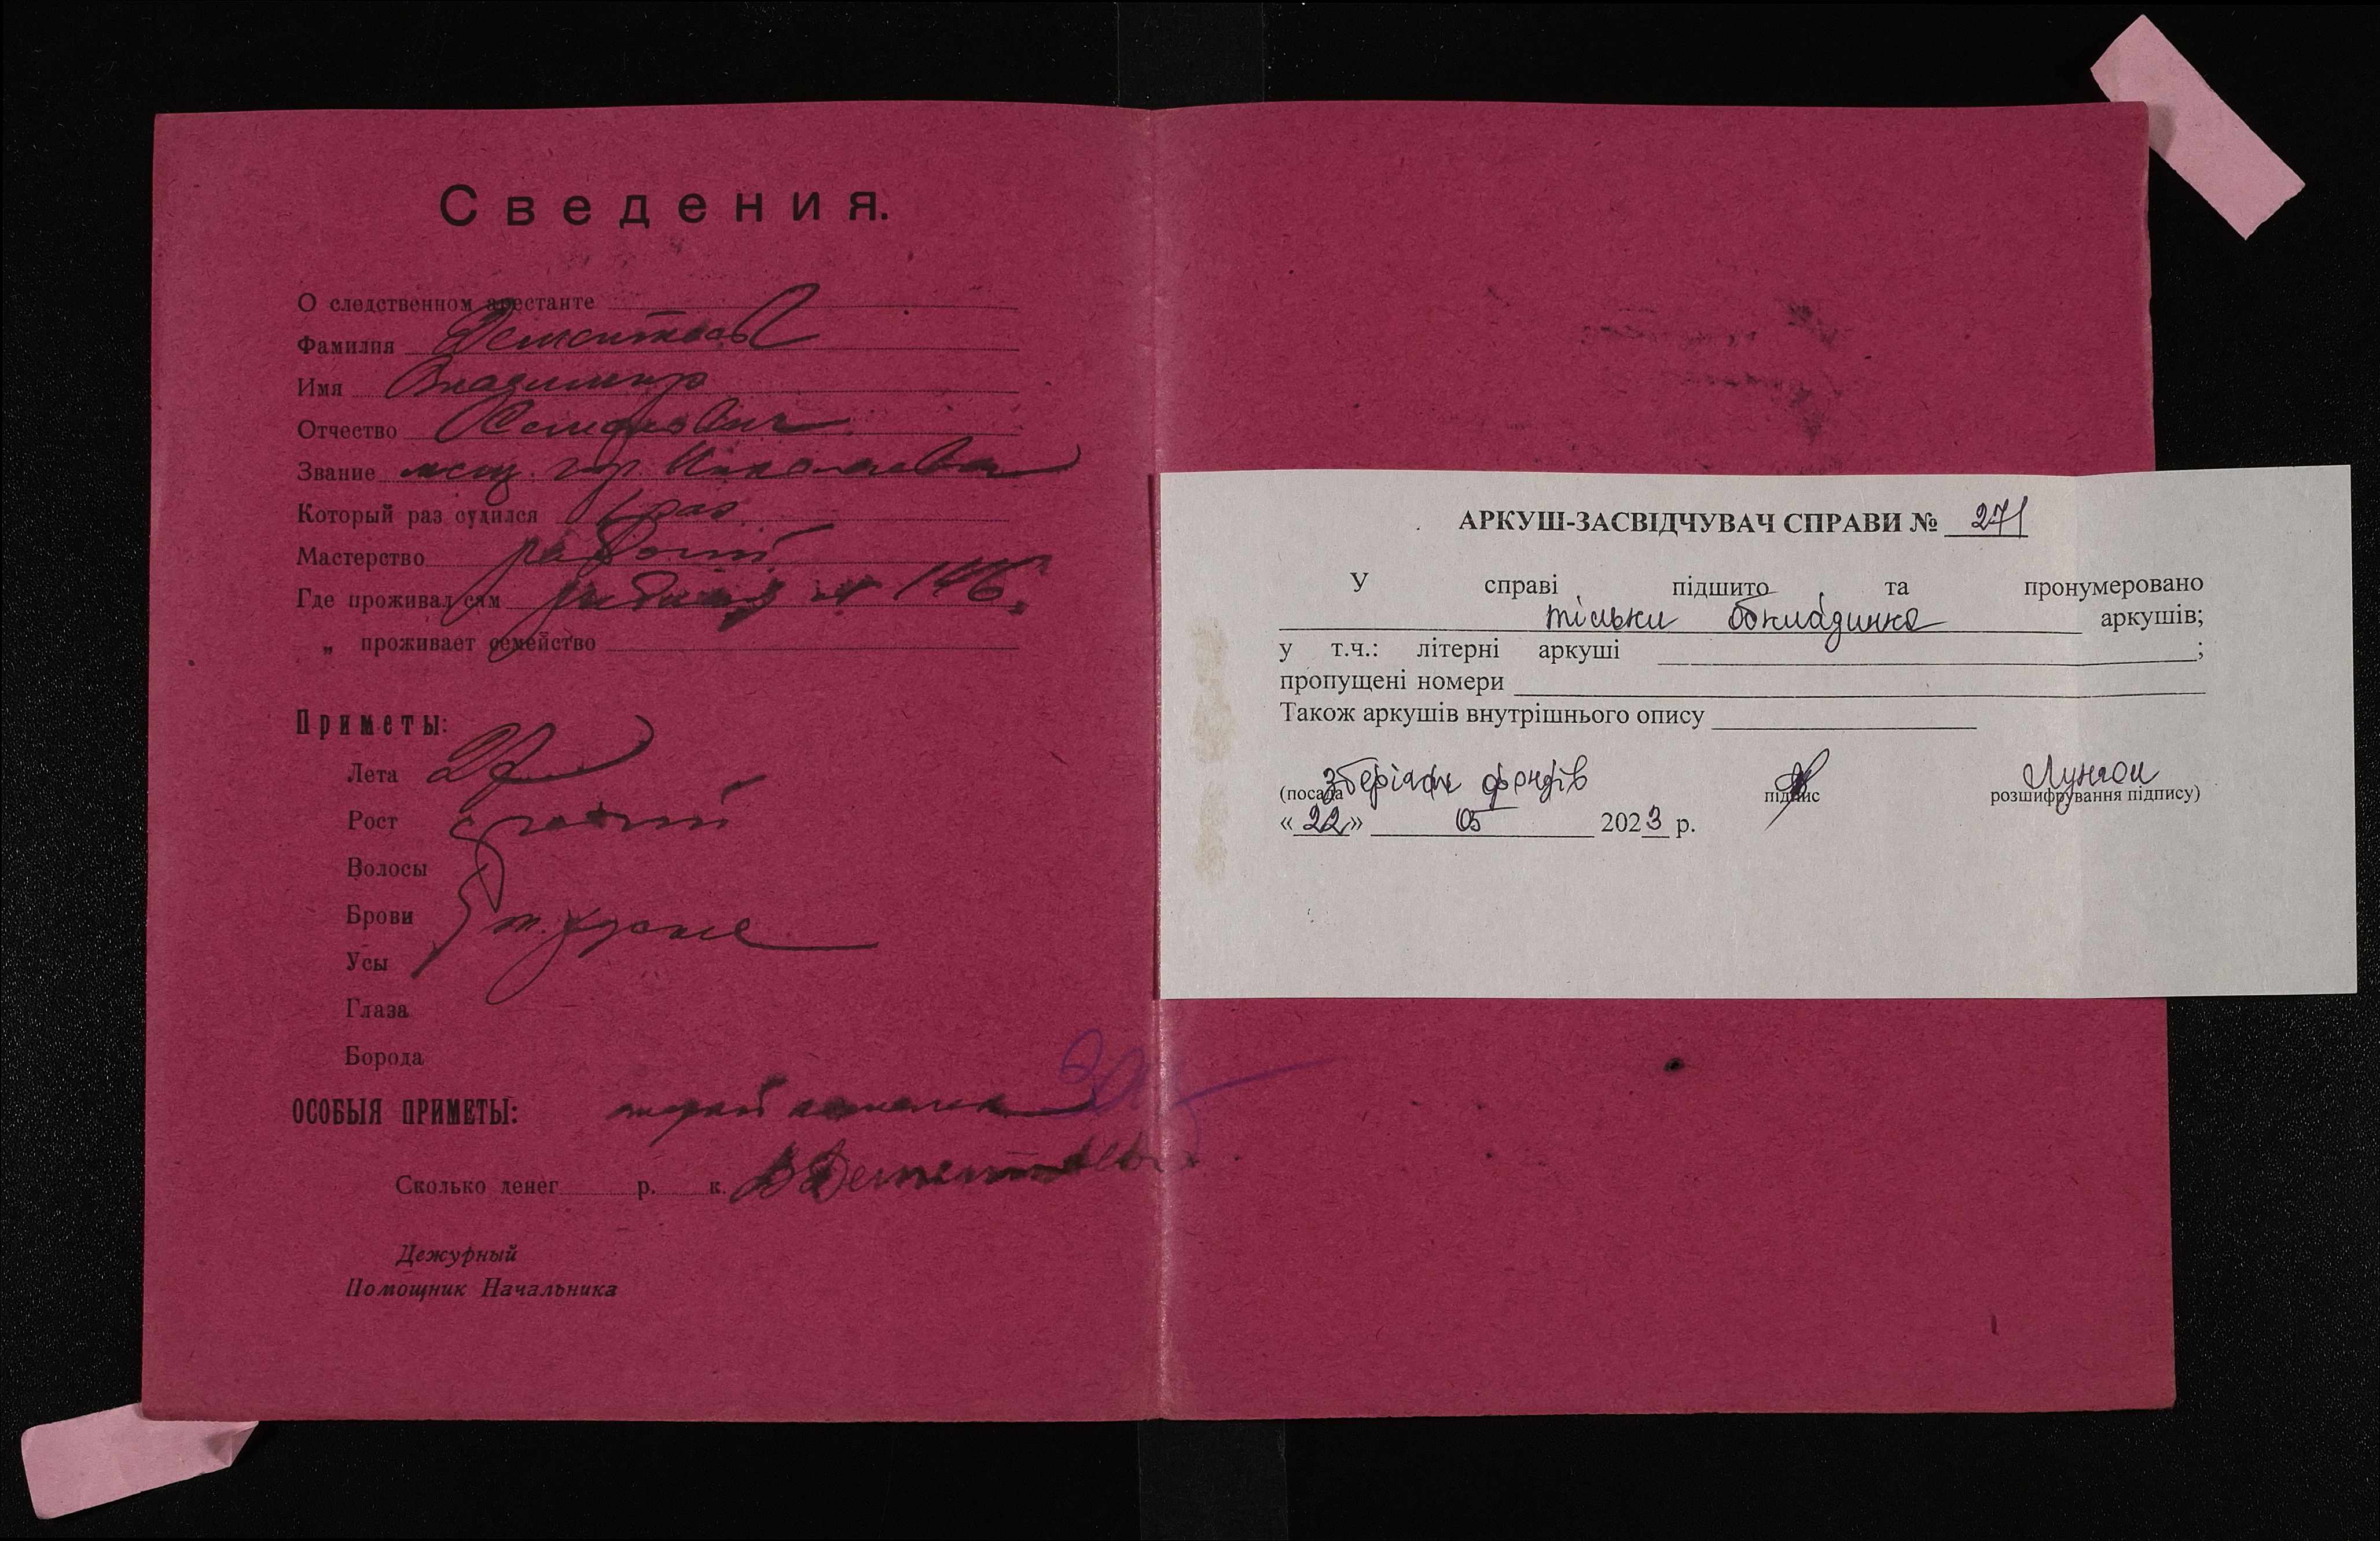 Сведения.
О следственном арестанте
Фамилия Дементьев
Имя Владимир
Отчество
Звание мещ. гор. Николаева
Который раз судился 1 раз
Мастерство рабочий
Где проживал сам 146
„ проживает семейство
Приметы:
Лета 27
Рост средний
Волосы
Брови т. русые
Усы
Глаза
Борода
ОСОБЫЯ ПРИМЕТЫ:
Сколько денег р. к. В Дементьев
Дежурный
Помощник Начальника
АРКУШ-ЗАСВІДЧУВАЧ СПРАВИ № 271
У справі підшито та пронумеровано
тільки обкладинка аркушів;
у т.ч.: літерні аркуші ;
пропущені номери
Також аркушів внутрішнього опису
зберігач фондів
(посада підпис розшифрування підпису)
«22» 05 2023 р.